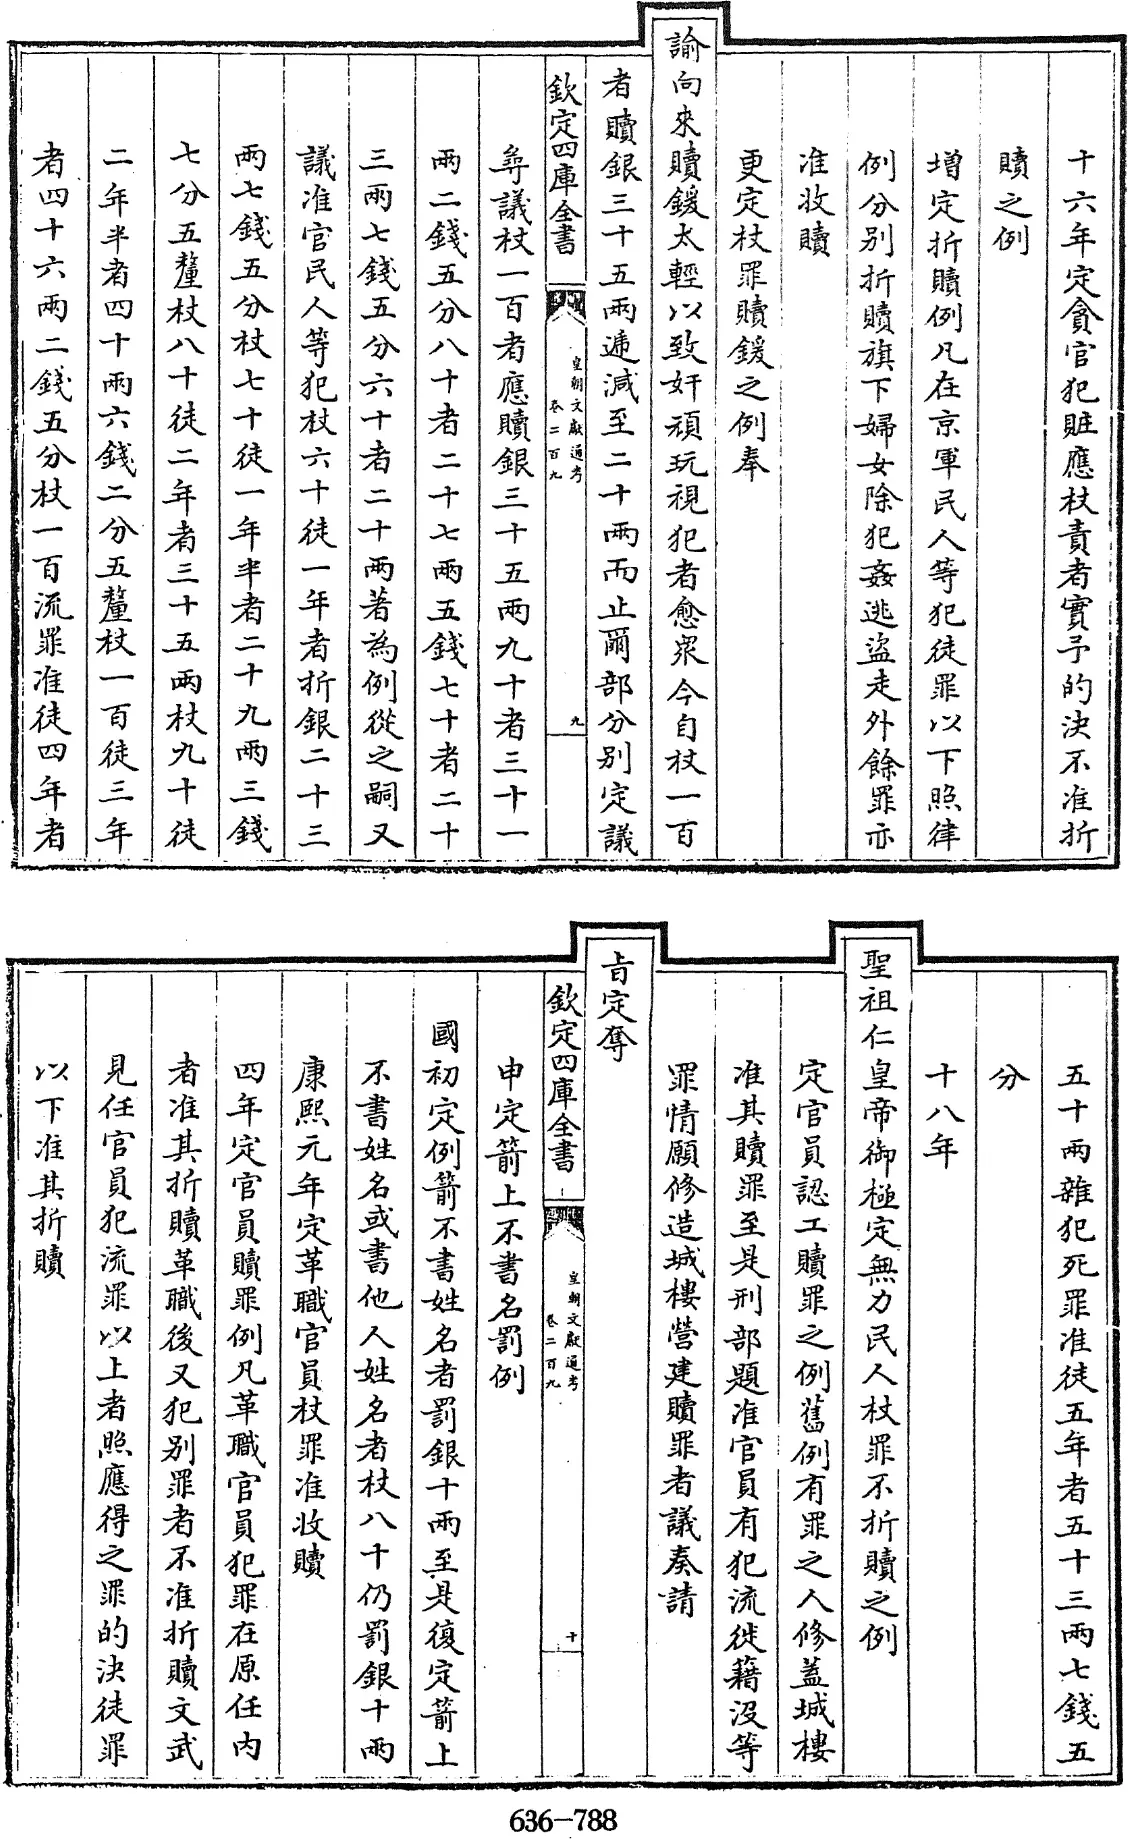 十六年定貪官犯贓應杖責者實予的決不准折
贖之例
增定折贖例凡在京軍民人等犯徒罪以下照律
例分别折贖旗下婦女除犯姦逃盜走外餘罪亦
准收贖
更定杖罪贖鍰之例奉
諭向來贖鍰太輕以致奸頑玩視犯者愈衆今自杖一百
者贖銀三十五兩遞減至二十兩而止爾部分别定議
欽定四庫全書
皇朝文獻通考
卷二百九
九
尋議杖一百者應贖銀三十五兩九十者三十一
兩二錢五分八十者二十七兩五錢七十者二十
三兩七錢五分六十者二十兩著為例從之嗣又
議准官民人等犯杖六十徒一年者折銀二十三
兩七錢五分杖七十徒一年半者二十九兩三錢
七分五釐杖八十徒二年者三十五兩杖九十徒
二年半者四十兩六錢二分五釐杖一百徒三年
者四十六兩二錢五分杖一百流罪准徒四年者
五十兩雜犯死罪准徒五年者五十三兩七錢五
分
十八年
聖祖仁皇帝御極定無力民人杖罪不折贖之例
定官員認工贖罪之例舊例有罪之人修蓋城樓
准其贖罪至是刑部題准官員有犯流徙籍没等
罪情願修造城樓營建贖罪者議奏請
旨定奪
欽定四庫全書
皇朝文獻通考
卷二百九
十
申定箭上不書名罰例
國初定例箭不書姓名者罰銀十兩至是復定箭上
不書姓名或書他人姓名者杖八十仍罰銀十兩
康熙元年定革職官員杖罪准收贖
四年定官員贖罪例凡革職官員犯罪在原任内
者准其折贖革職後又犯别罪者不准折贖文武
見任官員犯流罪以上者照應得之罪的決徒罪
以下准其折贖
636-788